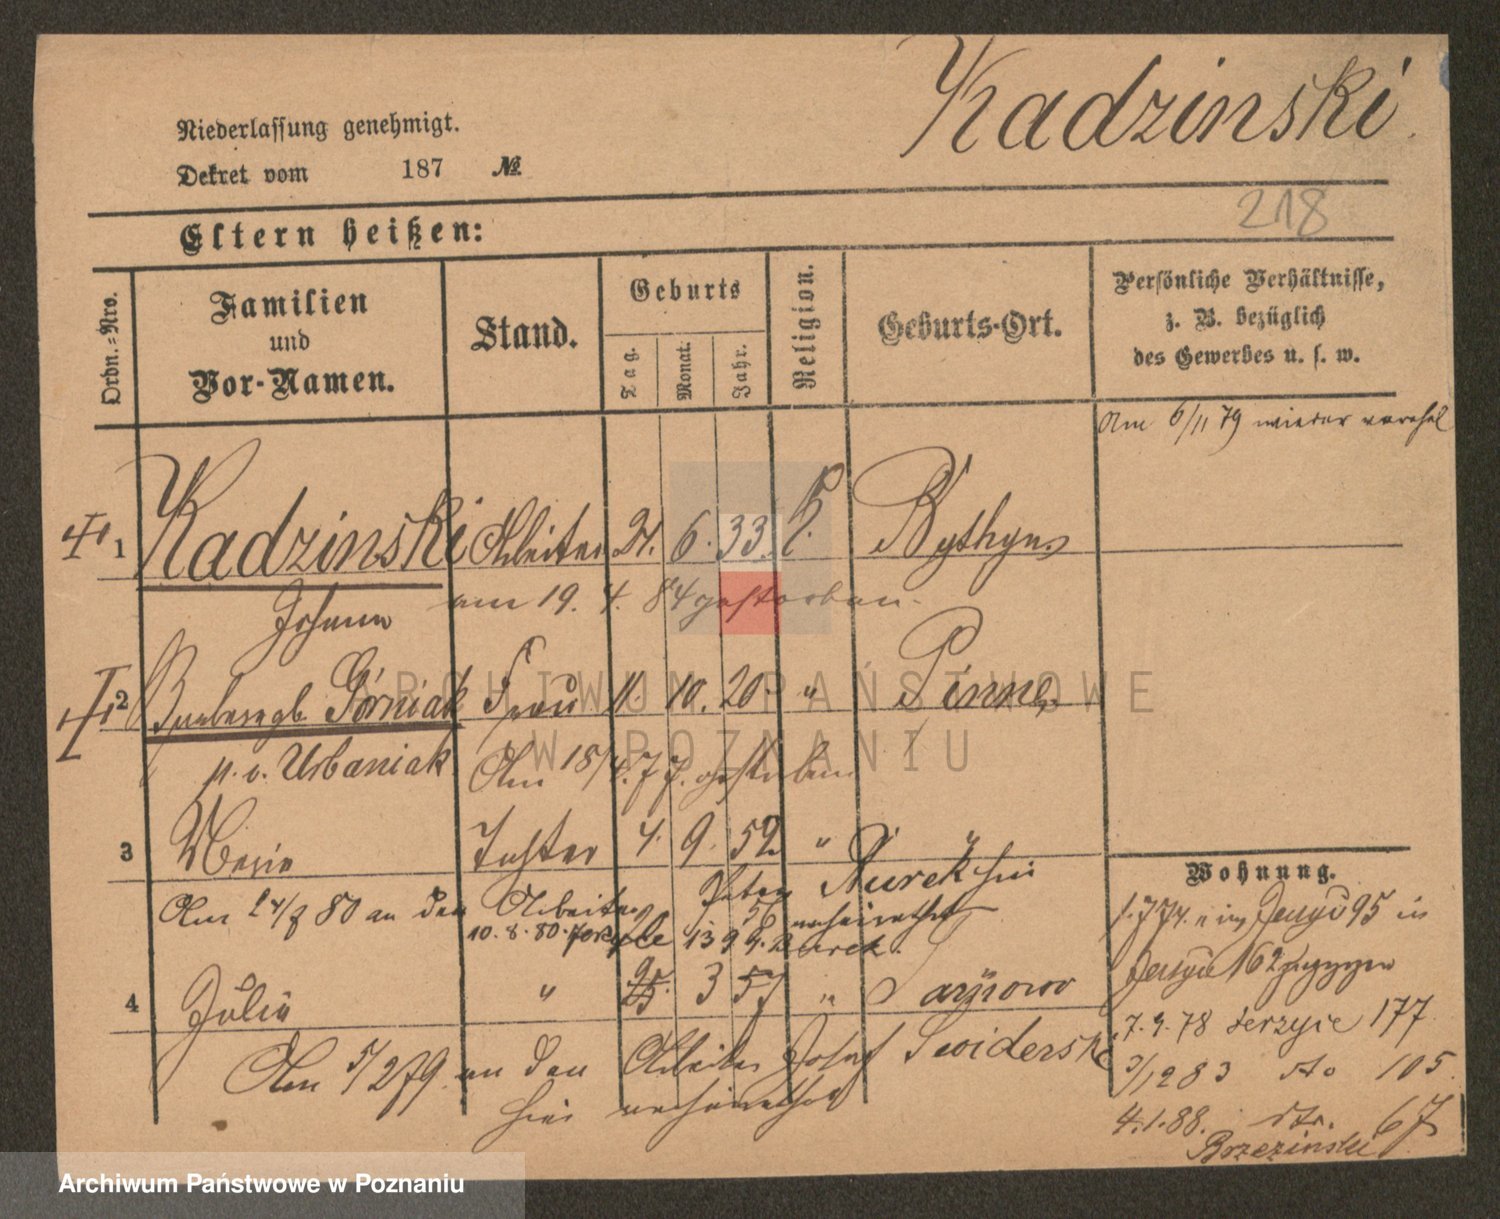 Kadzinski
Niederlassung genehmigt.
Dekret vom 187 №
218
Eltern heißen:
Ordn.=Nro.
Familien
und
Vor-Namen.
Stand.
Geburts
Tag.
Monat.
Jahr.
Religion.
Geburts-Ort.
Persönliche Verhältnisse,
z. B. bezüglich
des Gewerbes u. s. w.
Am 6/11 79 wieder verehel
1 Kadzinski Arbeiter 21. 6. 33. k. Bythyn
Johann am 19. 4. 84 gestorben.
2 Górniak Frau 11. 10. 20. " Pinne
p. v. Urbaniak Am 18/4. 77. gestorben
3 Marie Tochter 4. 9. 52 "
Am 24/8 80 an den Arbeiter Peter Kurek hier
verheirathet
10. 8. 80.
Wohnung.
4 Julie " 25. 3 57 " Sady
Am 5/2 79. an den Arbeiter Josef Swiderski
hier verheirathet
1. 7 74. Jersyce 95 in
Jersyce 162 gezogen
7. 9. 78 Jerzyce 177
3/12 83 do 105
4. 1. 88. dto. 67
Brzezinski
ARCHIWUM PAŃSTWOWE
W POZNANIU
Archiwum Państwowe w Poznaniu